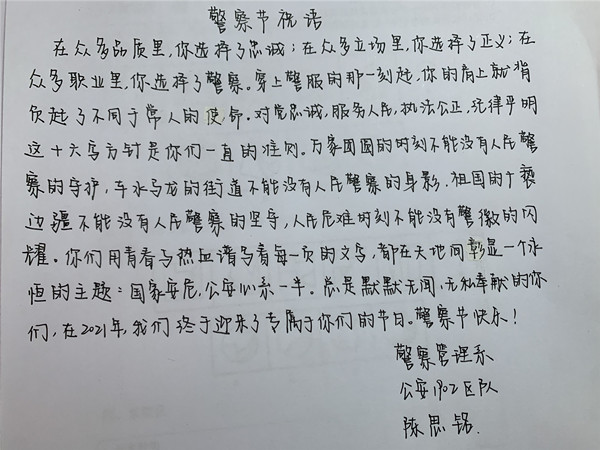 警察节祝语
在众多品质里,你选择了忠诚;在众多立场里,你选择了正义;在
众多职业里,你选择了警察。穿上警服的那一刻起,你的肩上就背
负起了不同于常人的使命。对党忠诚,服务人民,执法公正,纪律严明
这十六字方针是你们一直的准则。万家团圆的时刻不能没有人民警
察的守护,车水马龙的街道不能没有人民警察的身影,祖国的广袤
边疆不能没有人民警察的坚守,人民危难时刻不能没有警徽的闪
耀。你们用青春与热血谱写着每一页的文字,都在天地间彰显一个永
恒的主题:国家安危,公安心系一半。总是默默无闻,无私奉献的你
们,在2021年,我们终于迎来了专属于你们的节日。警察节快乐!
警察管理系
公安1902区队
陈思铭.